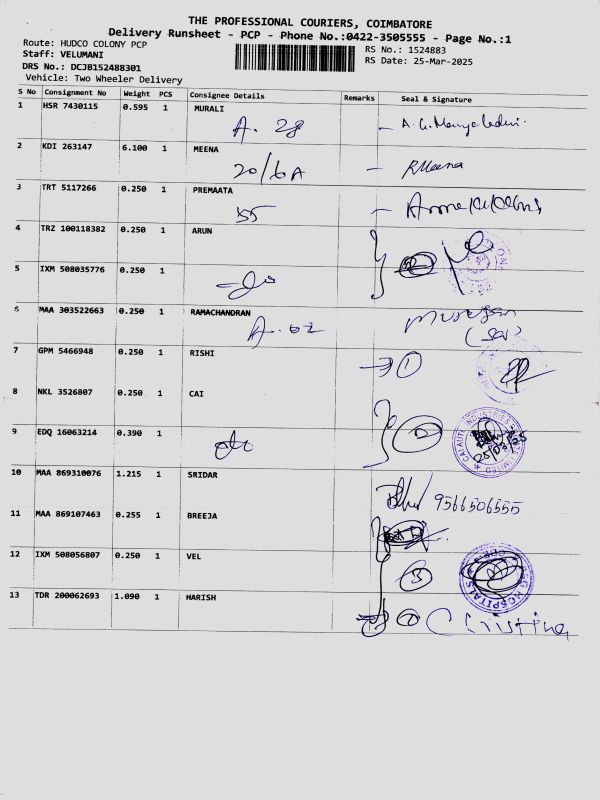 THE PROFESSIONAL COURIERS, COIMBATORE
Delivery Runsheet - PCP - Phone No.:0422-3505555 - Page No.:1
Route: HUDCO COLONY PCP
RS No.: 1524883
Staff: VELUMANI
RS Date: 25-Mar-2025
DRS No.: DCJB152488301
Vehicle: Two Wheeler Delivery
S No Consignment No Weight PCS Consignee Details Remarks Seal & Signature
1 HSR 7430115 0.595 1 MURALI
A. 28
2 KDI 263147 6.100 1 MEENA
20/6A RMeena
3 TRT 5117266 0.250 1 PREMAATA
55
4 TRZ 100118382 0.250 1 ARUN
5 IXM 508035776 0.250 1
6 MAA 303522663 0.250 1 RAMACHANDRAN
A. 02 Murugan
7 GPM 5466948 0.250 1 RISHI
1
8 NKL 3526807 0.250 1 CAI
9 EDQ 16063214 0.390 1
2
25/03/25
10 MAA 869310076 1.215 1 SRIDAR
9566506555
11 MAA 869107463 0.255 1 BREEJA
12 IXM 508056807 0.250 1 VEL
3
HOSPITALS
13 TDR 200062693 1.090 1 HARISH
Cristina